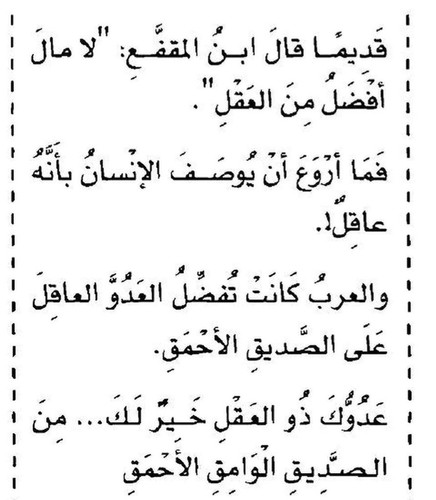 قَدِيمًا قالَ ابنُ المقفَّعِ: "لا مالَ
أفْضَلُ مِنَ العَقْلِ".
فَمَا أرْوَعَ أنْ يُوصَفَ الإنْسانُ بأنَّهُ
عاقِلٌ!.
والعربُ كَانَتْ تُفضِّلُ العَدُوَّ العاقِلَ
عَلَى الصَّديقِ الأحْمَقِ.
عَدُوُّكَ ذُو العَقْلِ خَيرٌ لَكَ... مِنَ
الصَّدِيقِ الْوَامِقِ الأحْمَقِ